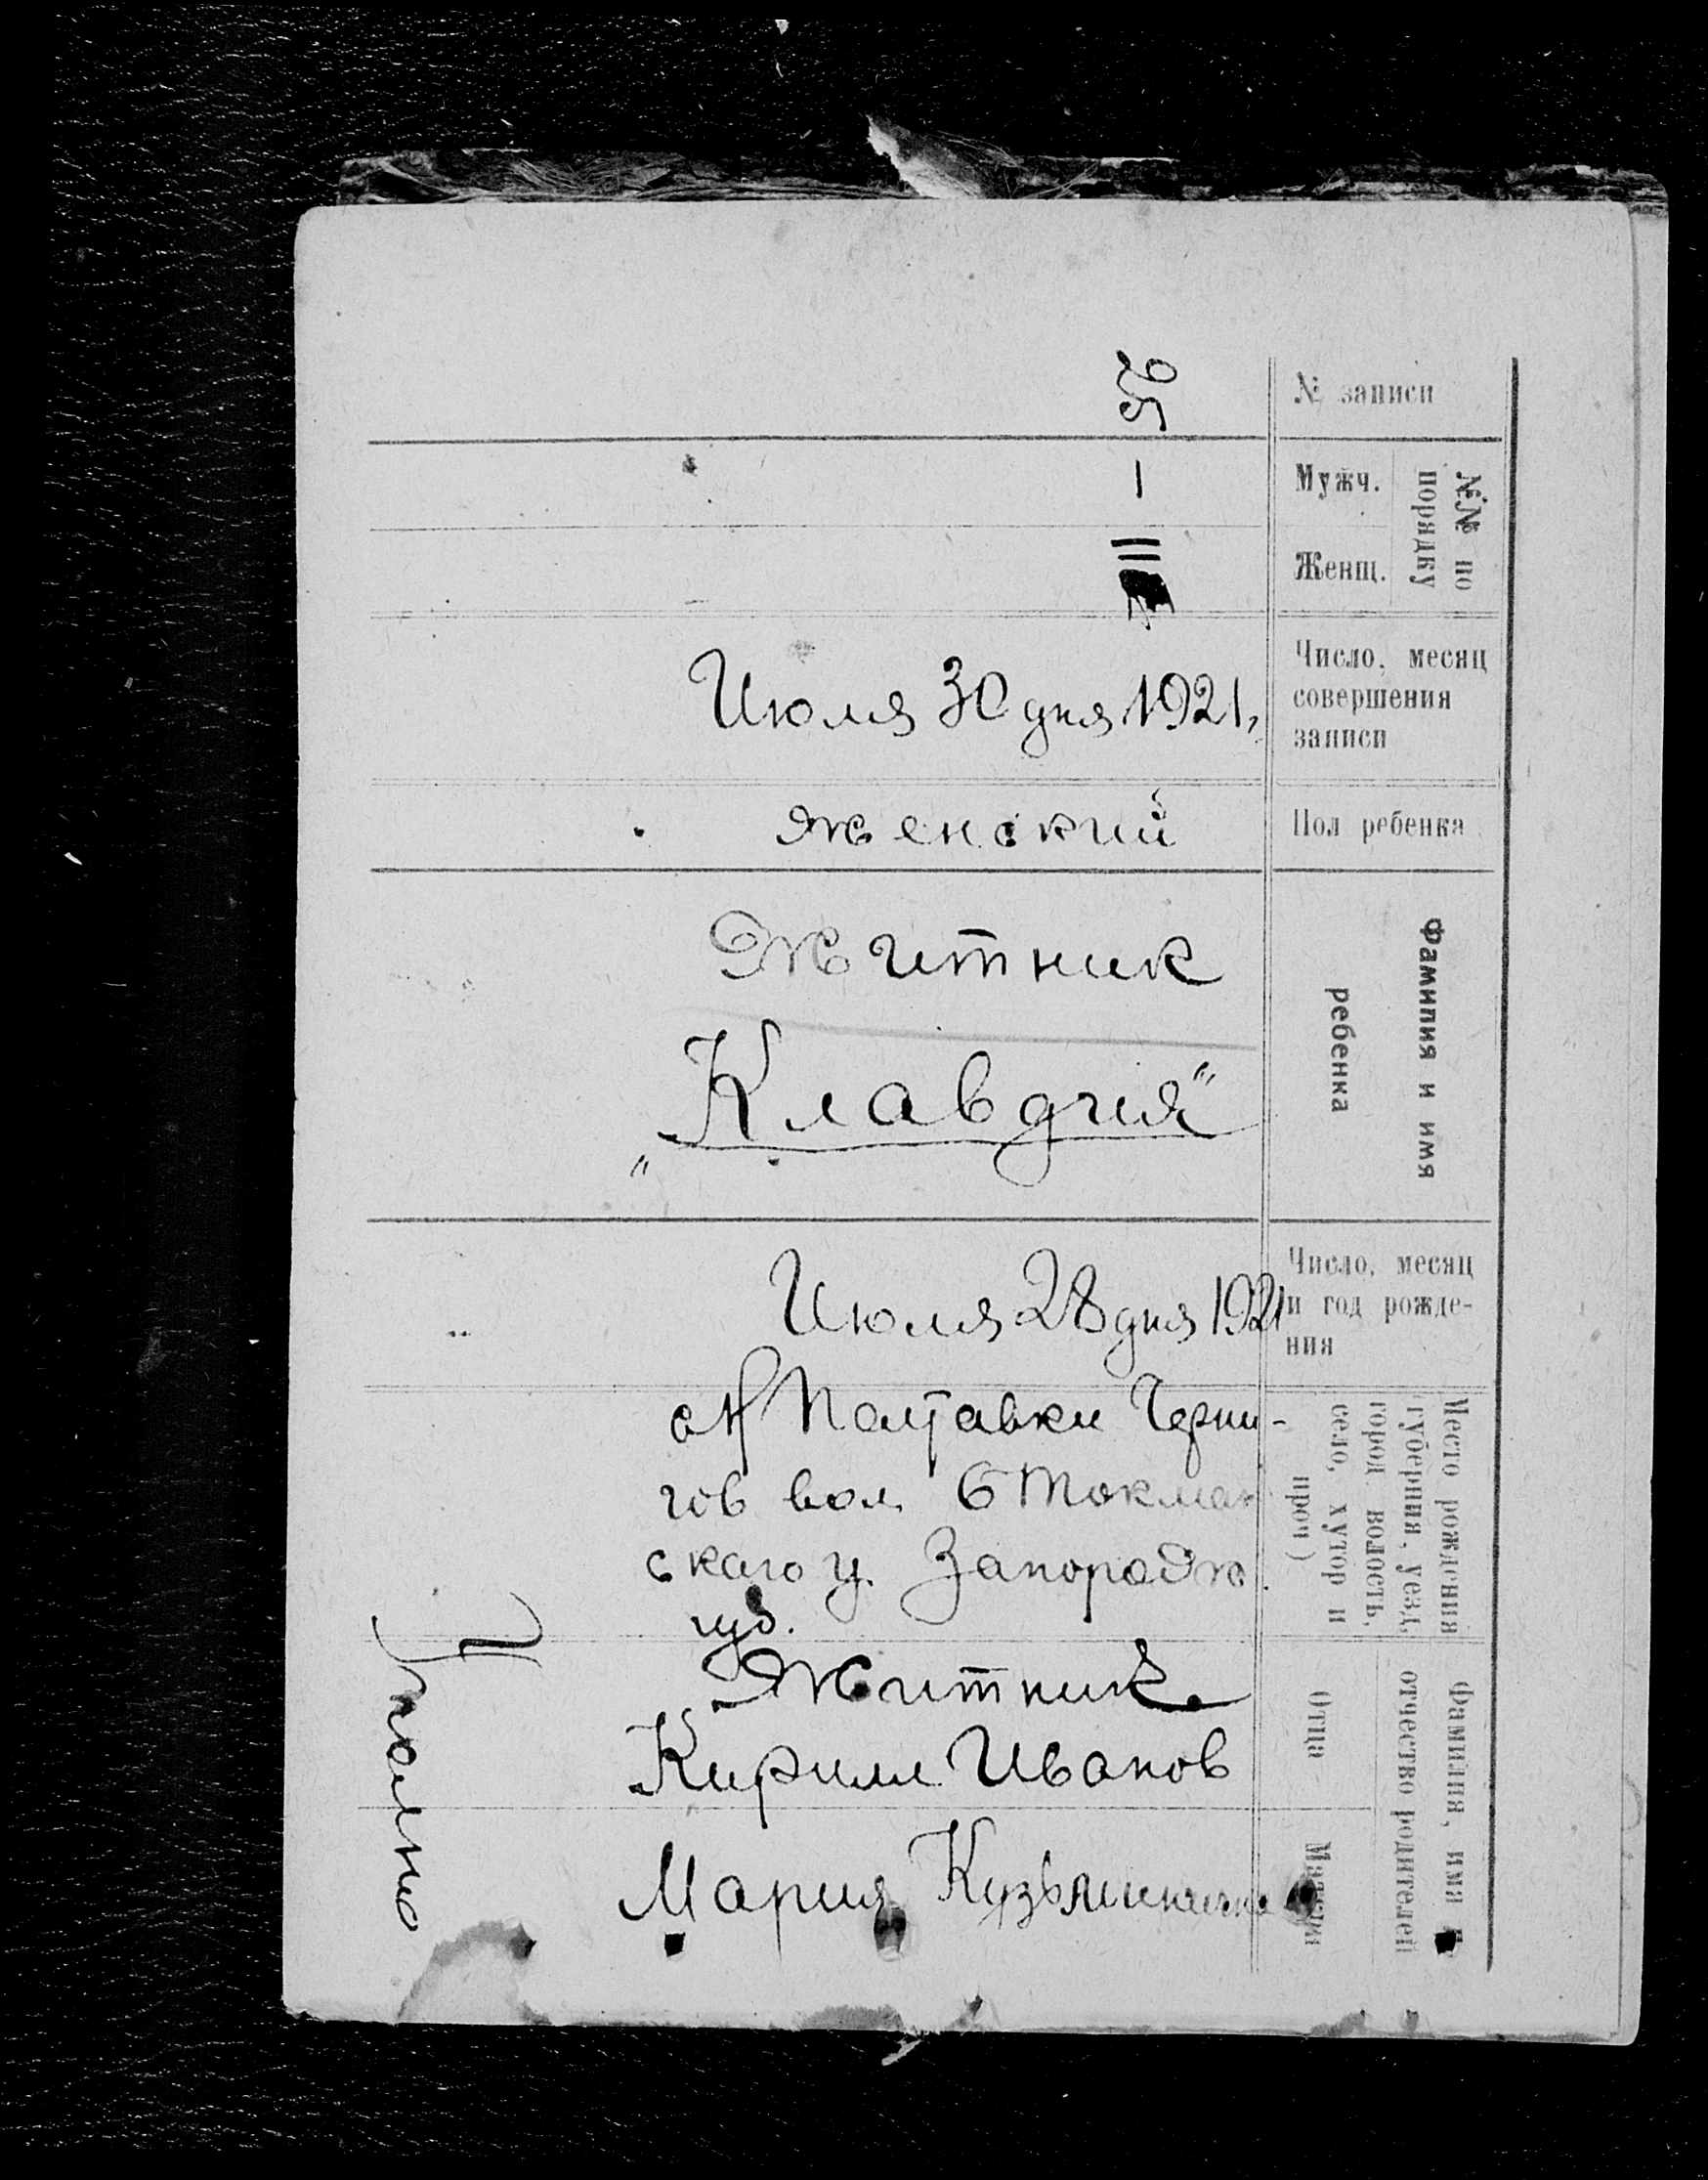 № записи
25
№№ по
порядку
Мужч.
—
Женщ.
Число, месяц
совершения
записи
Июля 30 дня 1921,
Пол ребенка
женский
Фамилия и имя
ребенка
Житник
„Клавдия“
Число, месяц
и год рожде-
ния
Июля 28 дня 1921
Место рождения
губерния, уезд,
город волость,
село, хутор и
проч)
Полтавки Черни-
гов вол. Б Токмак
скаго у. Запорож.
губ.
Фамилия, имя и
отчество родителей
Отца
Житник
Кирилл Иванов
Матери
Мария Кузьминична